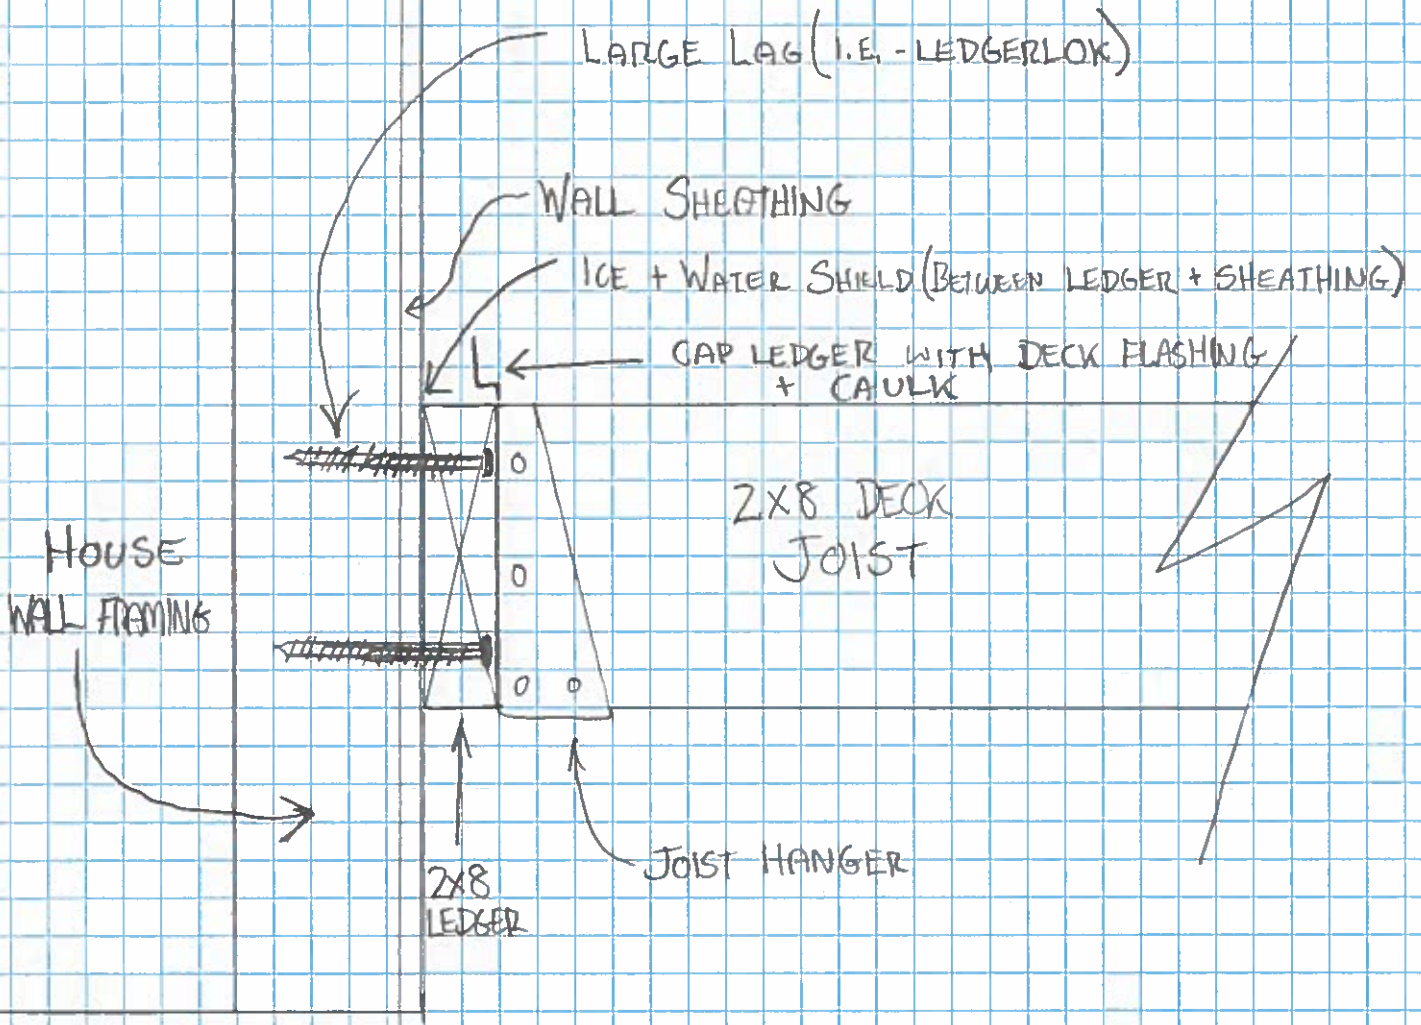 LARGE LAG (I.E. - LEDGERLOK)
WALL SHEATHING
ICE + WATER SHIELD (BETWEEN LEDGER + SHEATHING)
CAP LEDGER WITH DECK FLASHING
+ CAULK
2X8 DECK
JOIST
HOUSE
WALL FRAMING
JOIST HANGER
2X8
LEDGER